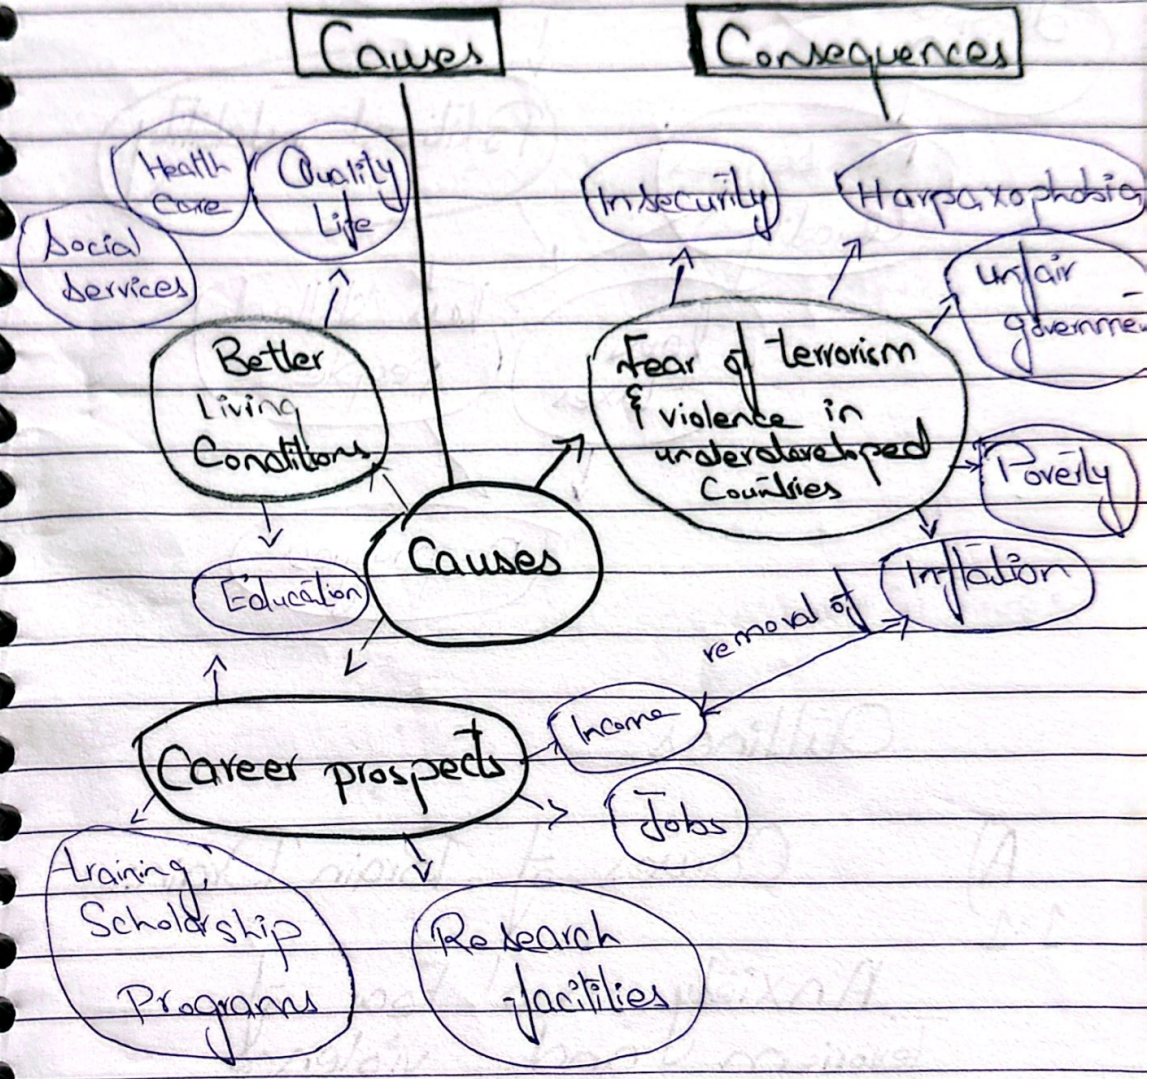 Causes
Consequences
Health
Care
Quality
Life
Social
Services
Insecurity
Harpaxophobia
unfair
governme
Better
Living
Conditions
Fear of terrorism
& violence in
underdeveloped
Countries
Poverty
Causes
Inflation
Education
removal of
Income
Career prospects
Jobs
training,
Scholarship
Programs
Research
facilities